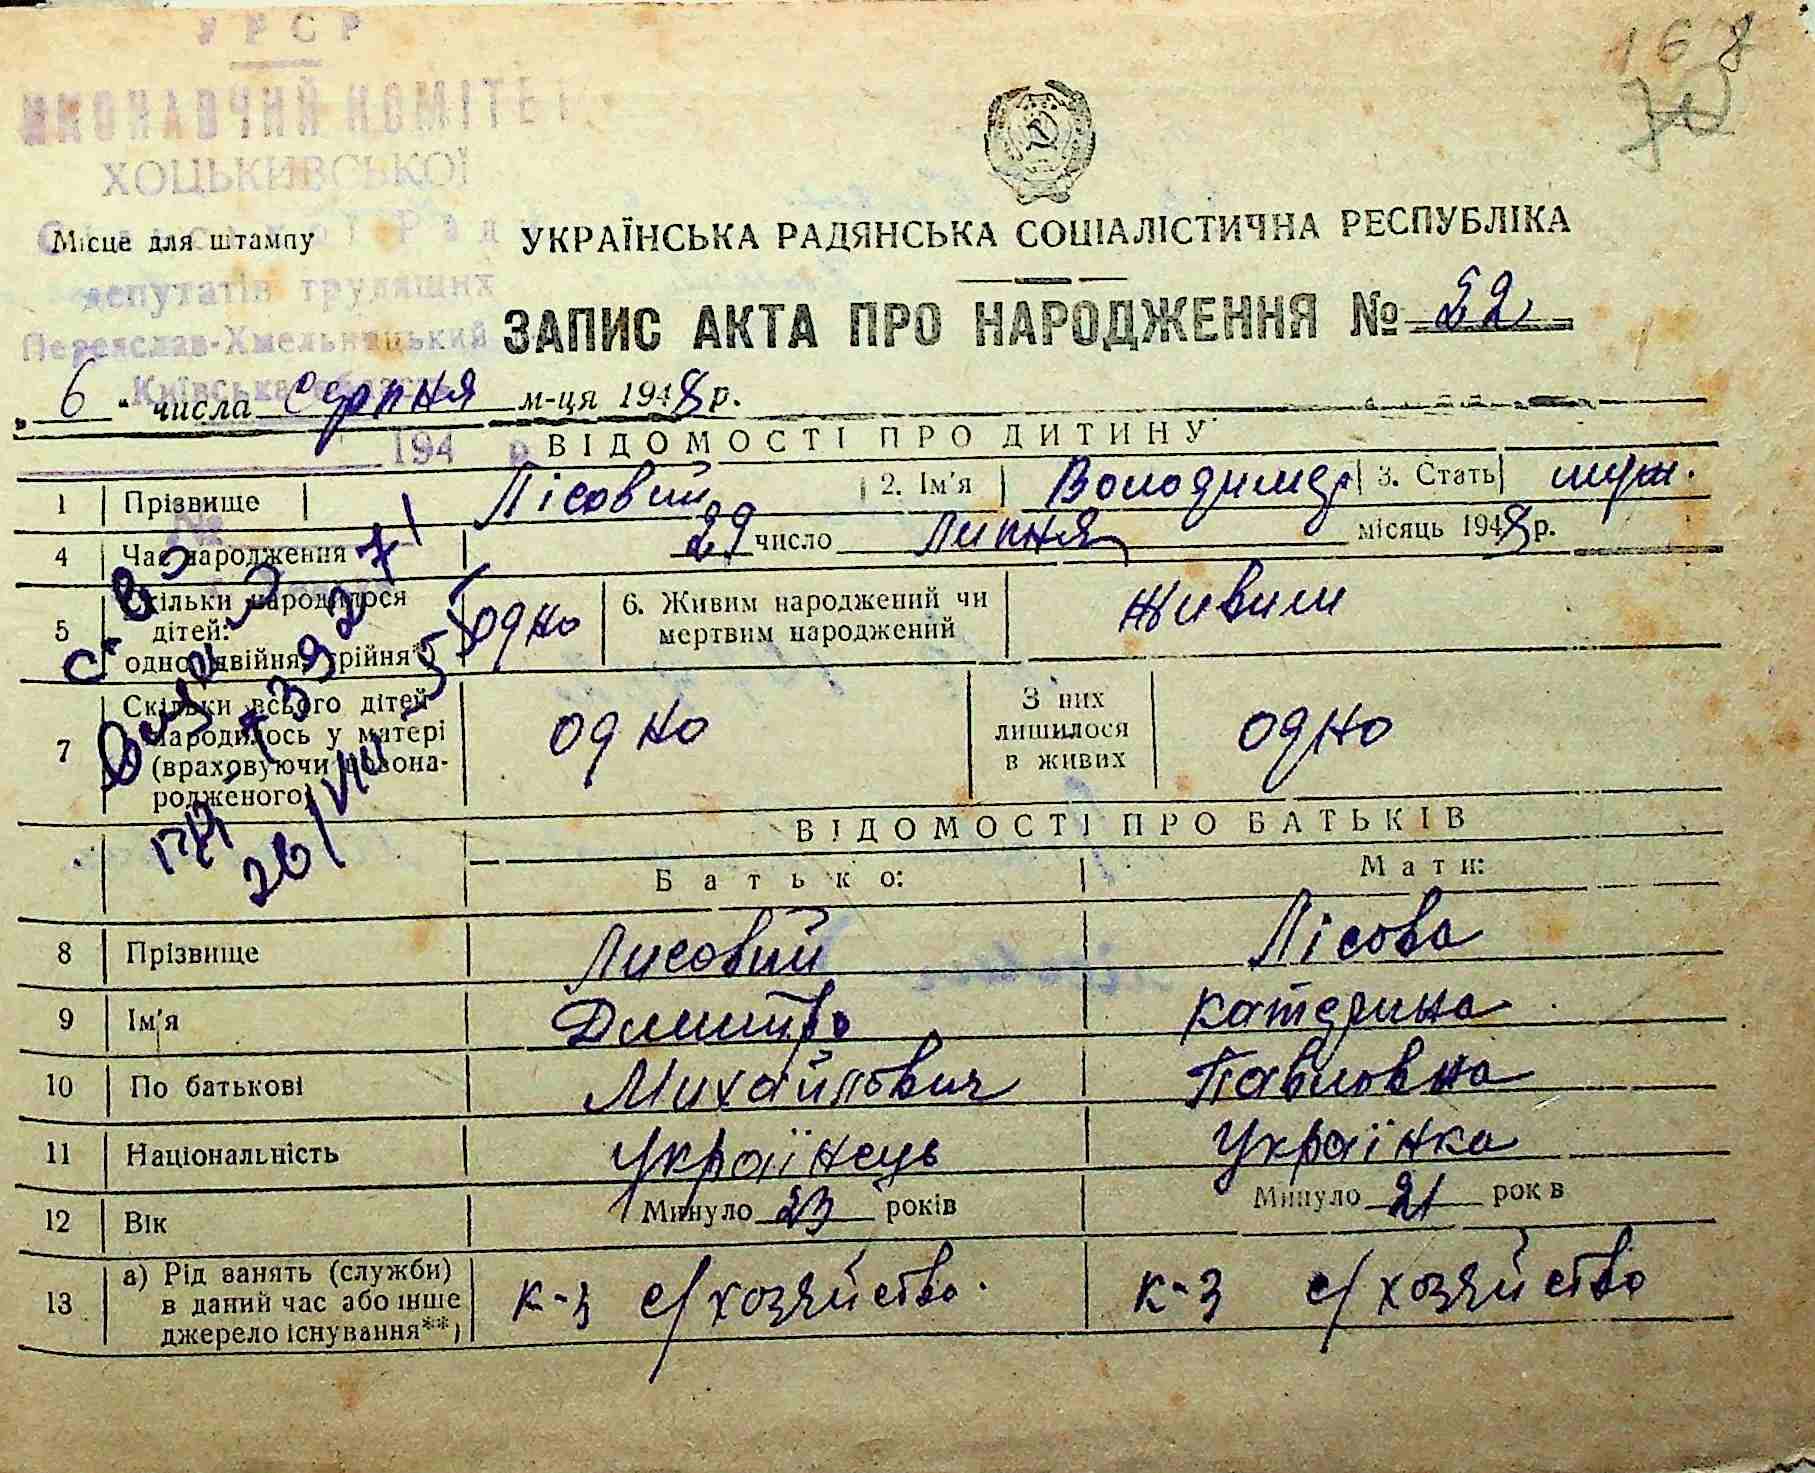 УРСР
ИКОНАВЧИЙ КОМІТЕТ
ХОЦЬКИВСЬКОЇ
Місце для штампу
депутатів трудящих
Переяслав-Хмельницький
Київська області
194 р
168
УКРАЇНСЬКА РАДЯНСЬКА СОЦІАЛІСТИЧНА РЕСПУБЛІКА
ЗАПИС АКТА ПРО НАРОДЖЕННЯ № 52
„ 6 “ числа Серпня м-ця 1948 р.
ВІДОМОСТІ ПРО ДИТИНУ
1 Прізвище Лісовий 2. Ім'я Володимер 3. Стать муж.
4 Час народження 29 число Липня місяць 1948 р.
5 Скільки народилося дітей: одно, двійня, трійня* одно 6. Живим народжений чи мертвим народжений Живим
7 Скільки всього дітей народилось у матері (враховуючи новона-родженого) одно З них лишилося в живих одно
26/VIII-55
ВІДОМОСТІ ПРО БАТЬКІВ
Батько: Мати:
8 Прізвище Лисовий Лісова
9 Ім'я Дмитро Катерина
10 По батькові Михайлович Павловна
11 Національність Українець Українка
12 Вік Минуло 23 років Минуло 21 рок в
13 а) Рід занять (служби) в даний час або інше джерело існування**) к-з с/хозяйство. к-з с/хозяйство